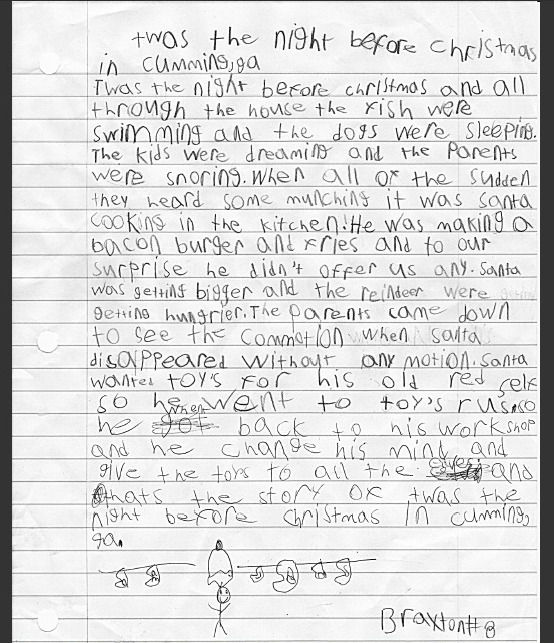 twas the night before christmas
in cumming,ga
Twas the night before christmas and all
through the house the fish were
swimming and the dogs were sleeping.
The kids were dreaming and the Parents
were snoring. When all of the sudden
they heard some munching it was santa
cooking in the kitchen! He was making a
bacon burger and fries and to our
surprise he didn't offer us any. Santa
was getting bigger and the reindeer were
getting hungrier. The Parents came down
to see the commotion when santa
disappeared without any motion. Santa
wanted toy's for his old red self
so he went to toy's r us. so
he when back to his workshop
and he change his mind and
give the toys to all the and
thats the story of twas the
night before christmas in cumming,
ga.
Braxton #8